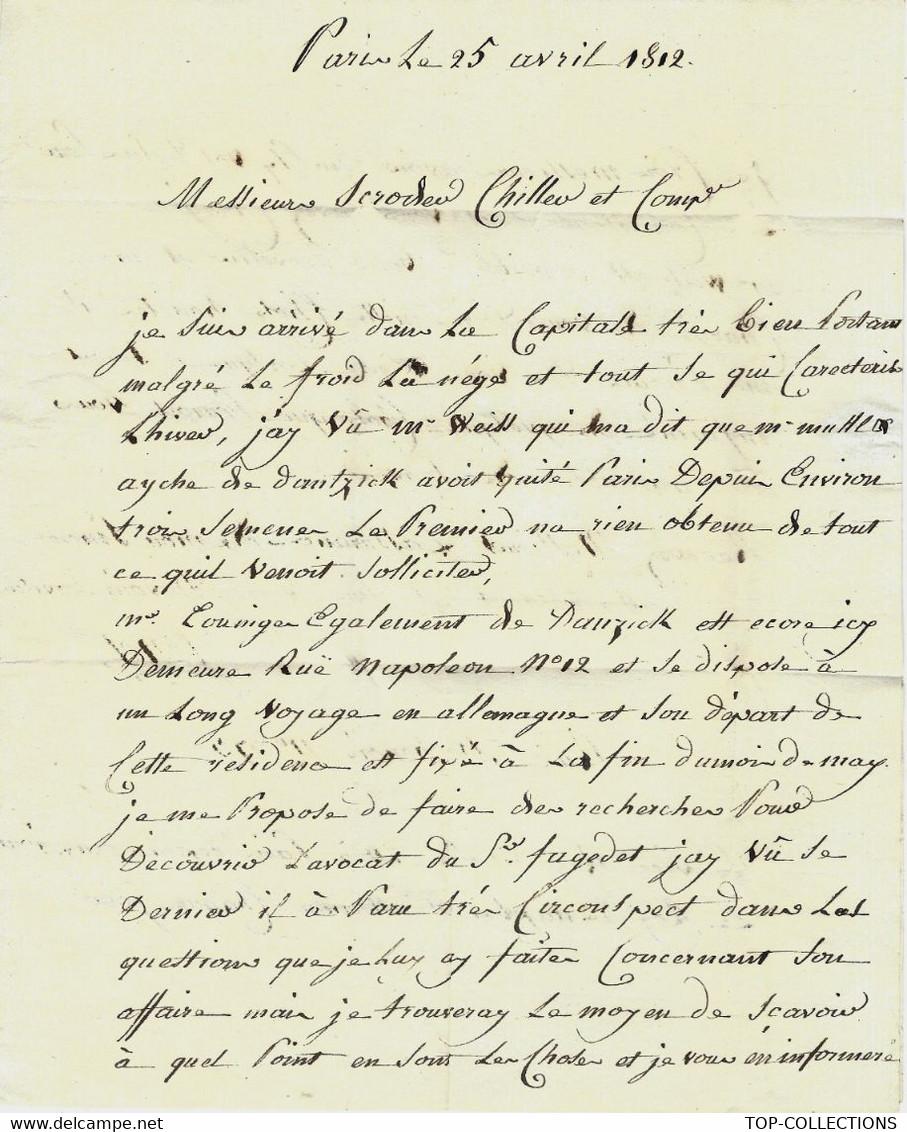 Paris Le 25 avril 1812.
Messieurs Scroder Chiller et Comp.e
je suis arrivé dans La Capitale très bien Portant
malgré Le froid La nége et tout se qui Carecteris
Lhiver, j'ay Vû mr Weiss qui ma dit que mr
ayche de dantzick avoit quité Paris Depuis Environ
trois Semenes Le Premier na rien obtenu de tout
ce quil Venoit Solliciter,
mr. Egalement de Danzick est ecore icy
Demeure Ruë Napoleon No 12 et se dispose à
un Long Voyage en allemagne et son départ de
Cette résidence est fixé à La fin dumois de may.
je me Propose de faire des recherches Pour
Découvrir Lavocat du Sr. fagedet jay Vû se
Dernier il à Paru trés Circonspect dans Les
questions que je Luy ay faites Concernant Son
affaire mais je trouveray Le moyen de Scavoir
à quel Point en sont Les Choses et je vous en informeré
TOP-COLLECTIONS